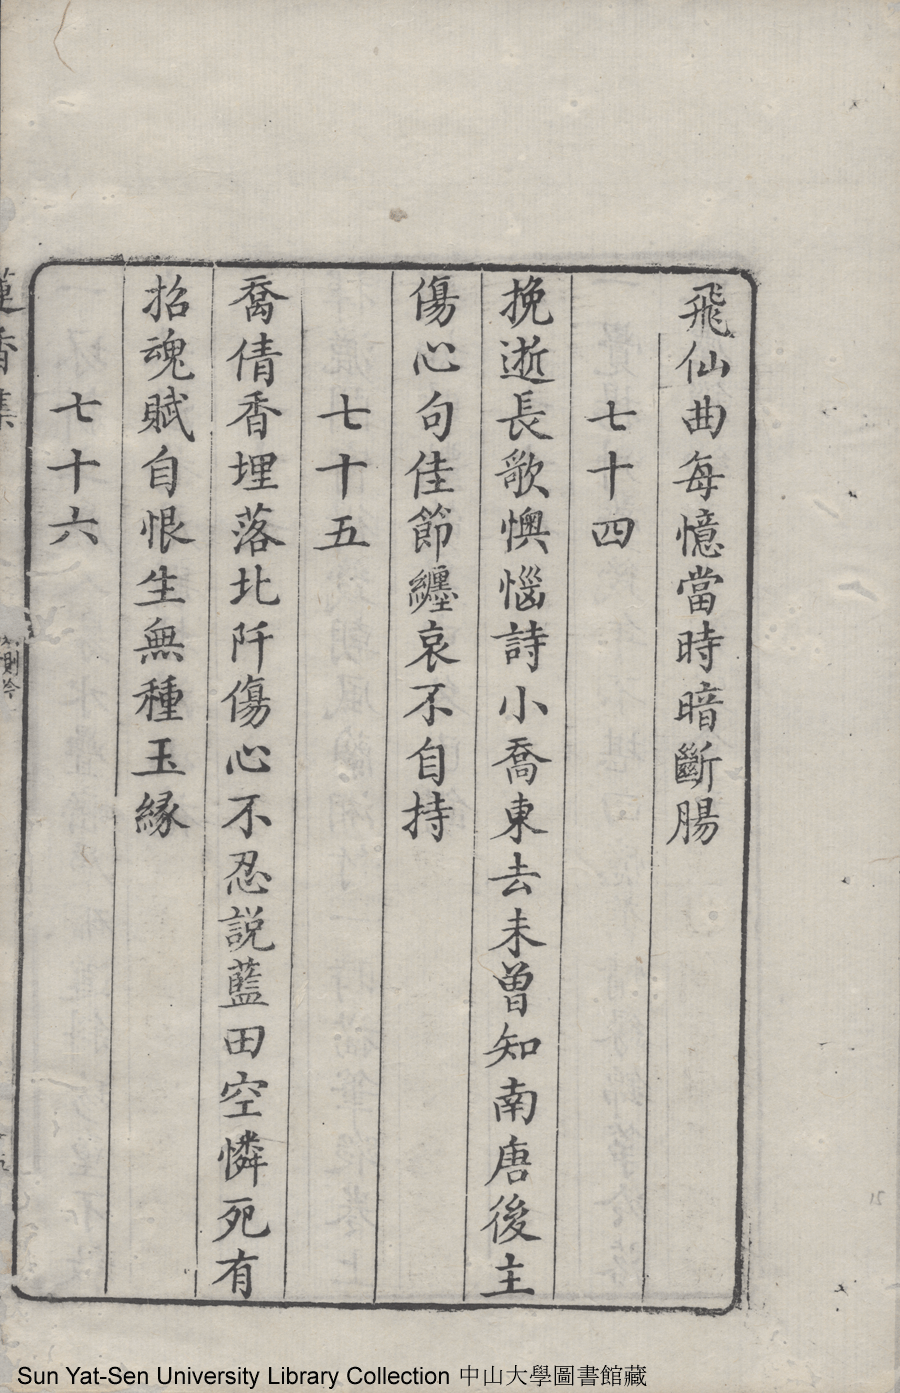 飛仙曲每憶當時暗斷腸
七十四
挽逝長歌懊惱詩小喬東去未曾知南唐後主
傷心句佳節纏哀不自持
七十五
喬倩香埋落北阡傷心不忍説藍田空憐死有
招魂賦自恨生無種玉緣
七十六
蓮香集
Sun Yat-Sen University Library Collection 中山大學圖書館藏